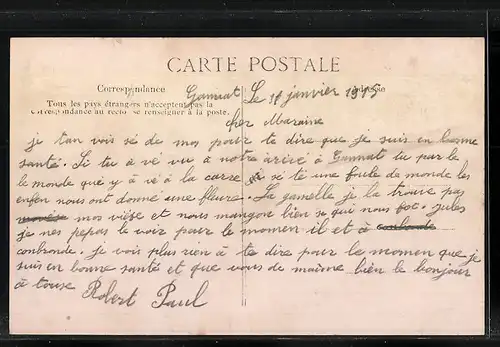 CARTE POSTALE
Correspondance
Adresse
Tous les pays étrangers n'acceptent pas la
Correspondance au recto se renseigner à la poste.
Gannat Le 18 janvier 1915
cher Maraine
je tan vois sé de mos pour te dire que je suis en bonne
santé. Si tu a vé vu a notre arivé à Gannat tu par le
le monde que y à vé à la care si sé te une foule de monde les
enfen nous ont donné une fleure. La gamelle je la trouve pas
mos viése et nous mangon bien se qui nous fot. jules
je nes pepas le voir pour le momen il et à
conbronde. je vois plus rien à te dire pour le momen que je
suis en bonne santé et que vous de maime bien le bonjour
à touse Robert Paul